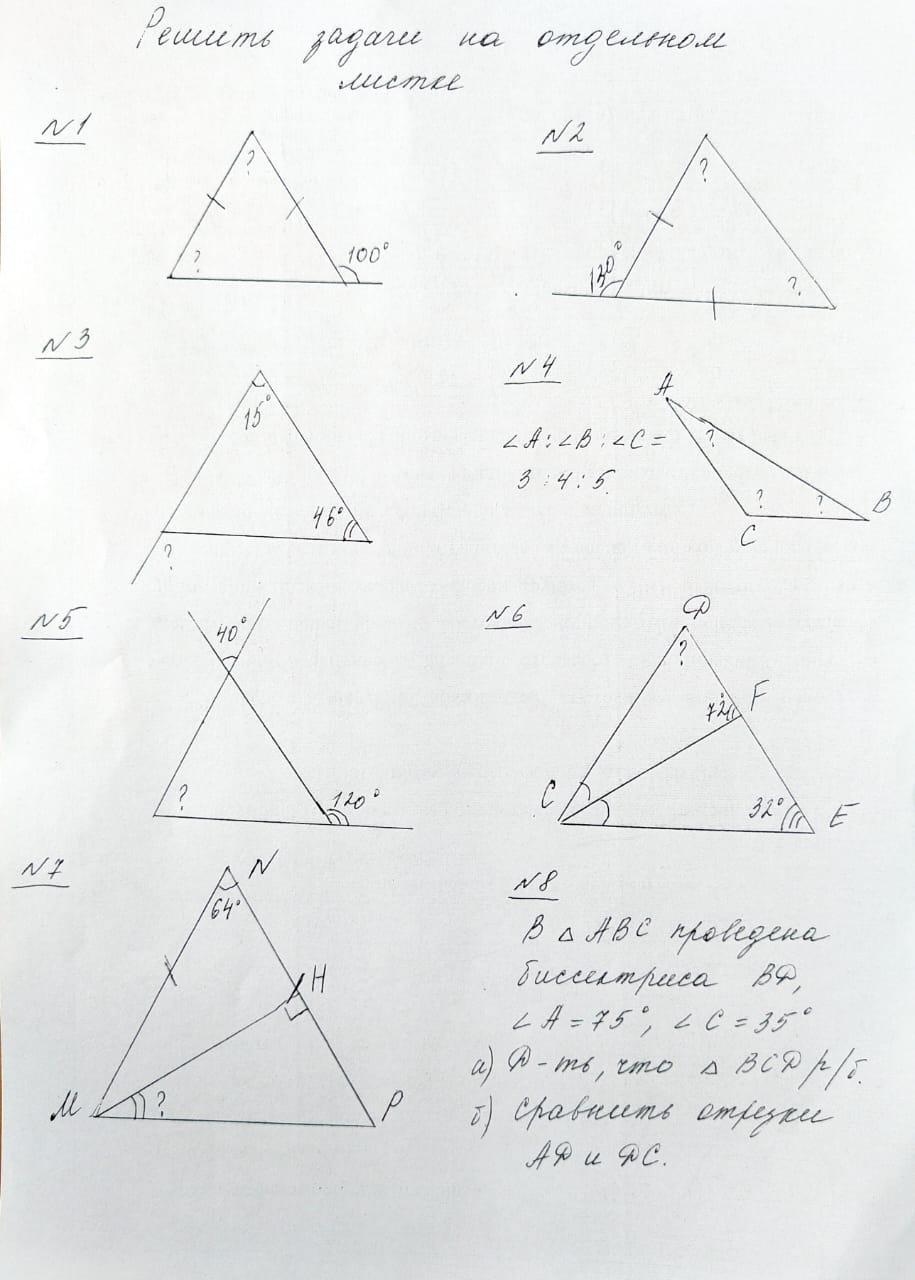 Решить задачи на отдельном
листке
N1
?
?
100°
N2
?
130°
?
N3
15°
46°
?
N4
∠A:∠B:∠C=
3:4:5.
A
?
?
?
B
C
N5
40°
?
120°
N6
D
?
F
72°
C
32°
E
N7
N
64°
H
M
?
P
N8
В △ ABC проведена
биссектриса BD,
∠A=75°, ∠C=35°
а) D-ть, что △ BCD р/б.
б) сравнить отрезки
AD и DC.